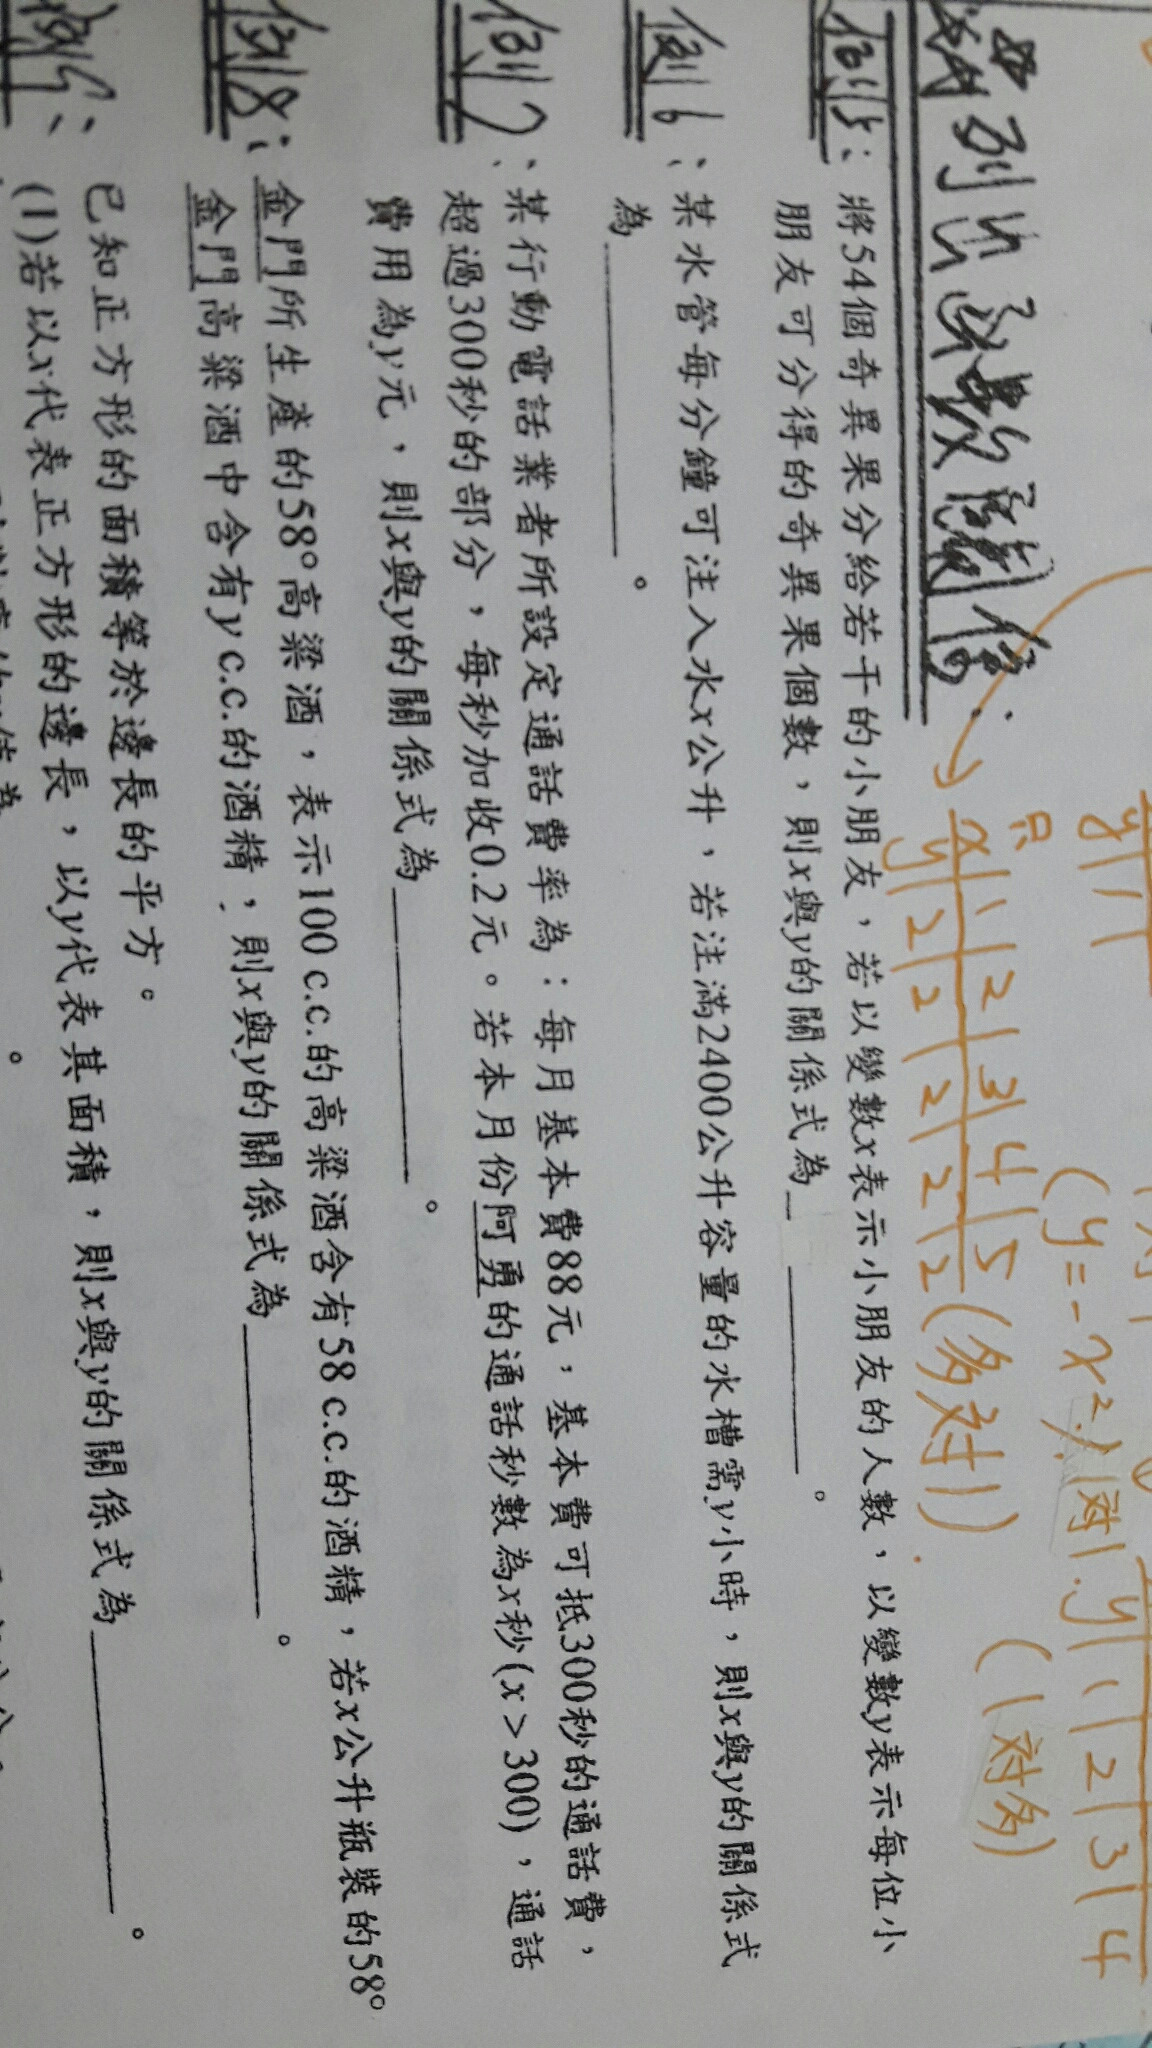 y | 1
(y=-x² 1對1.
y | 1 | 2 | 3 | 4
(1對多)
只
x | 1 | 2 | 3 | 4 | 5
y | 2 | 2 | 2 | 2 | 2 (多對1)
列出函數關係:
例5:將54個奇異果分給若干的小朋友,若以變數x表示小朋友的人數,以變數y表示每位小
朋友可分得的奇異果個數,則x與y的關係式為__________。
例6、某水管每分鐘可注入水x公升,若注滿2400公升容量的水槽需y小時,則x與y的關係式
為__________。
例7、某行動電話業者所設定通話費率為:每月基本費88元,基本費可抵300秒的通話費,
超過300秒的部分,每秒加收0.2元。若本月份阿勇的通話秒數為x秒(x>300),通話
費用為y元,則x與y的關係式為__________。
例8:金門所生產的58°高粱酒,表示100 c.c.的高粱酒含有58 c.c.的酒精,若x公升瓶裝的58°
金門高粱酒中含有y c.c.的酒精,則x與y的關係式為__________。
例9、已知正方形的面積等於邊長的平方。
(1)若以x代表正方形的邊長,以y代表其面積,則x與y的關係式為__________。